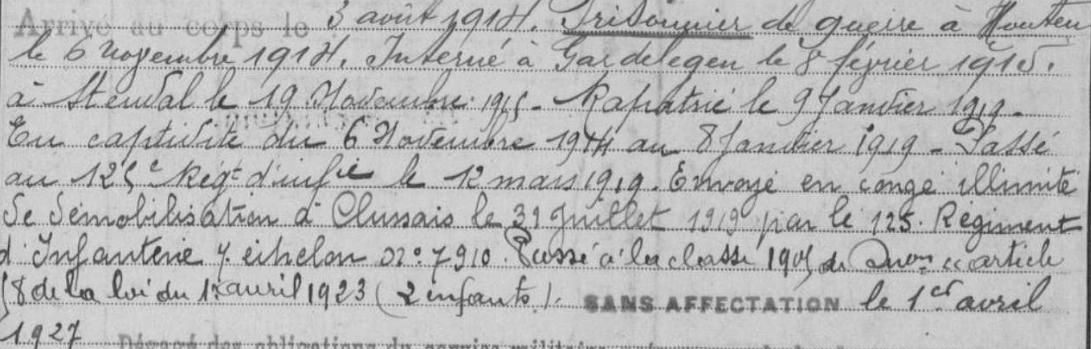 Arrivé au corps le 3 août 1914. Prisonnier de guerre à
le 6 novembre 1914. Interné à Gardelegen le 8 février 1915.
à Stendal le 19 Novembre 1915 - Rapatrié le 9 Janvier 1919 -
En captivité du 6 Novembre 1914 au 8 Janvier 1919 - Passé
au 125e Régt d'infie le 12 mars 1919. Envoyé en congé illimité
de démobilisation à Clussais le 31 Juillet 1919 par le 125. Régiment
d'Infanterie 7. échelon no. 7910. Passé à la classe 190 de article
58 de la loi du 1er avril 1923 (2 enfants). SANS AFFECTATION le 1er avril
1927 Dégagé des obligations du service militaire